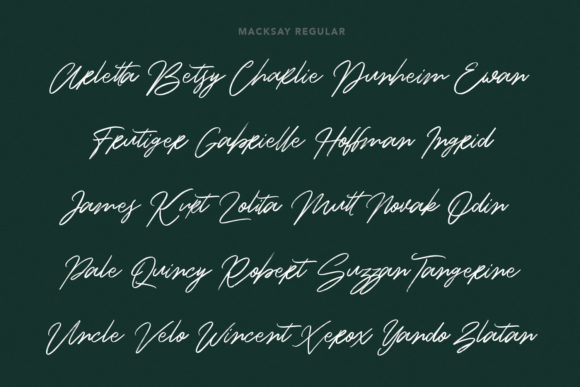 MACKSAY REGULAR
Arletta Betsy Charlie Dunheim Ewan
Frutiger Gabrielle Hoffman Ingrid
James Kurt Lolita Mutt Novak Odin
Pale Quincy Robert Suzzan Tangerine
Uncle Velo Wincent Xerox Yando Zlatan